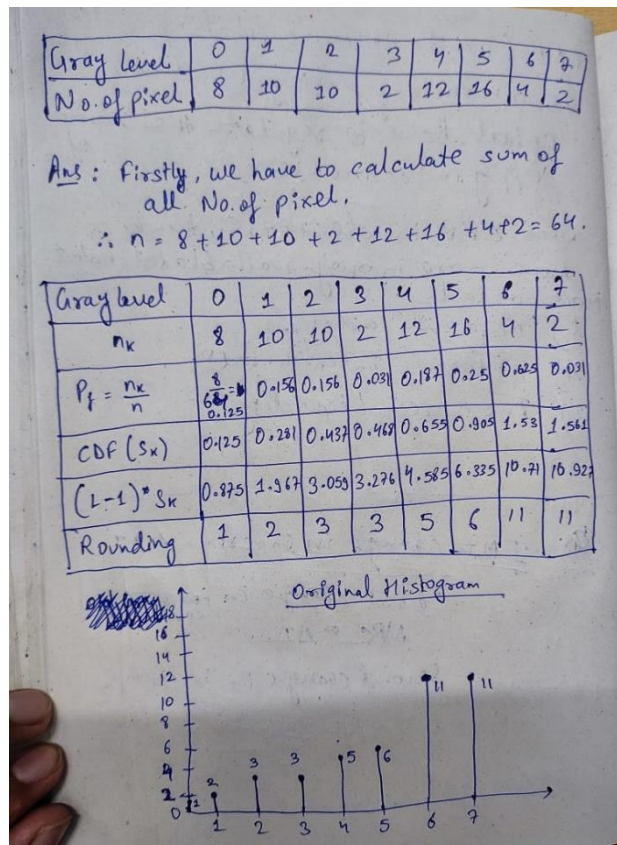 Gray Level 0 1 2 3 4 5 6 7
No. of pixel 8 10 10 2 12 16 4 2
Ans : Firstly, we have to calculate sum of
all No. of pixel.
∴ n = 8 + 10 + 10 + 2 + 12 + 16 + 4 + 2 = 64.
Gray level 0 1 2 3 4 5 6 7
nk 8 10 10 2 12 16 4 2
Pf = nk/n 8/64 = 0.125 0.156 0.156 0.031 0.187 0.25 0.625 0.031
CDF (Sk) 0.125 0.281 0.437 0.468 0.655 0.905 1.53 1.561
(L-1)* Sk 0.875 1.967 3.059 3.276 4.585 6.335 10.71 10.927
Rounding 1 2 3 3 5 6 11 11
Original Histogram
18
16
14
12 11 11
10
8
6 5 6
4 3 3
2 2
0 1
1 2 3 4 5 6 7